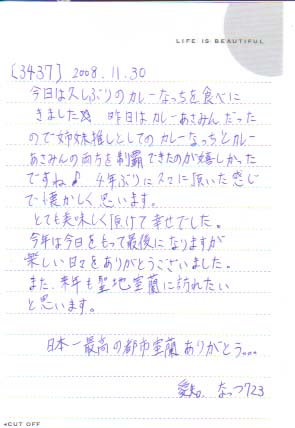 LIFE IS BEAUTIFUL
[3437] 2008.11.30
今日は久しぶりのカレーなっちを食べに
きました☆ 昨日はカレーあさみん だった
ので姉妹推しとしてのカレーなっちとカレー
あさみんの両方を制覇できたのが嬉しかった
ですね♪ 4年ぶりに久々に頂いた感じ
で懐かしく思います。
とても美味しく頂けて幸せでした。
今年は今日をもって最後になりますが
楽しい日々をありがとうございました。
また、来年も聖地室蘭に訪れたい
と思います。
日本一最高の都市室蘭ありがとう...
愛知 なっつ723
◂CUT OFF